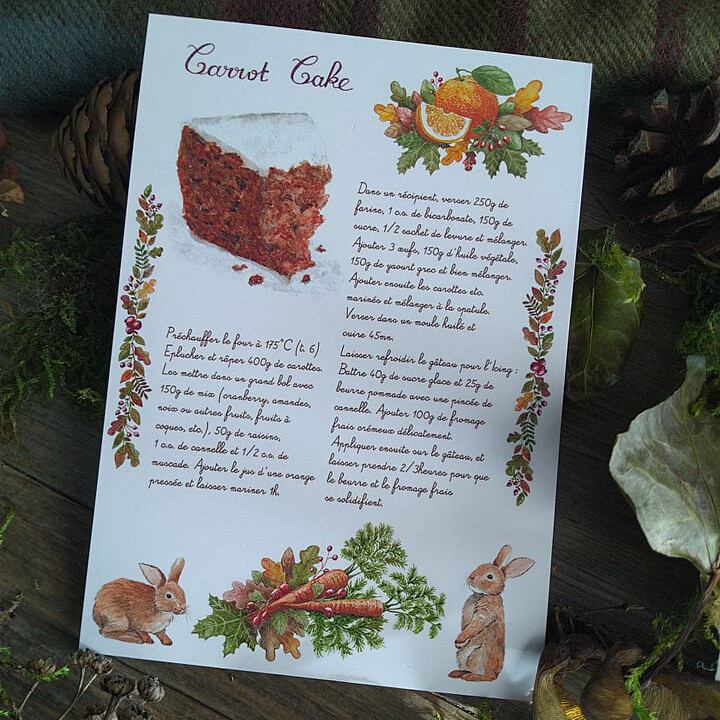 Carrot Cake
Préchauffer le four à 175°C (t. 6)
Eplucher et râper 400g de carottes.
Les mettre dans un grand bol avec
150g de mix (cranberry, amandes,
noix ou autres fruits, fruits à
coques, etc.), 50g de raisins,
1 c.s. de cannelle et 1/2 c.s. de
muscade. Ajouter le jus d'une orange
pressée et laisser mariner 1h.
Dans un récipient, verser 250g de
farine, 1 c.s. de bicarbonate, 150g de
sucre, 1/2 sachet de levure et mélanger.
Ajouter 3 œufs, 150g d'huile végétale,
150g de yaourt grec et bien mélanger.
Ajouter ensuite les carottes etc.
marinés et mélanger à la spatule.
Verser dans un moule huilé et
cuire 45mn.
Laisser refroidir le gâteau pour l'Icing :
Battre 40g de sucre glace et 25g de
beurre pommade avec une pincée de
cannelle. Ajouter 100g de fromage
frais crémeux délicatement.
Appliquer ensuite sur le gâteau, et
laisser prendre 2/3heures pour que
le beurre et le fromage frais
se solidifient.